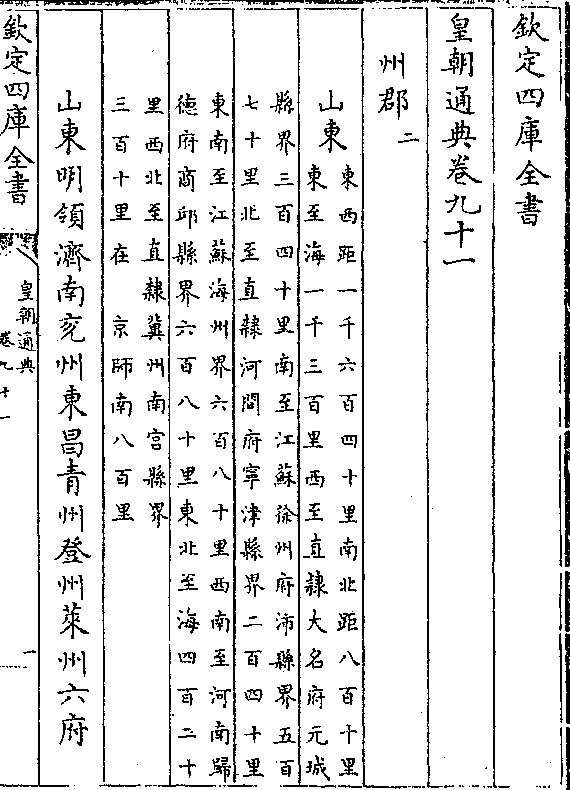 欽定四庫全書
皇朝通典卷九十一
州郡二
山東
東西距一千六百四十里南北距八百十里
東至海一千三百里西至直隸大名府元城
縣界三百四十里南至江蘇徐州府沛縣界五百
七十里北至直隸河間府寧津縣界二百四十里
東南至江蘇海州界六百八十里西南至河南歸
德府商邱縣界六百八十里東北至海四百二十
里西北至直隸冀州南宮縣界
三百十里在 京師南八百里
山東明領濟南兖州東昌青州登州萊州六府
欽定四庫全書
皇朝通典
卷九十一
一